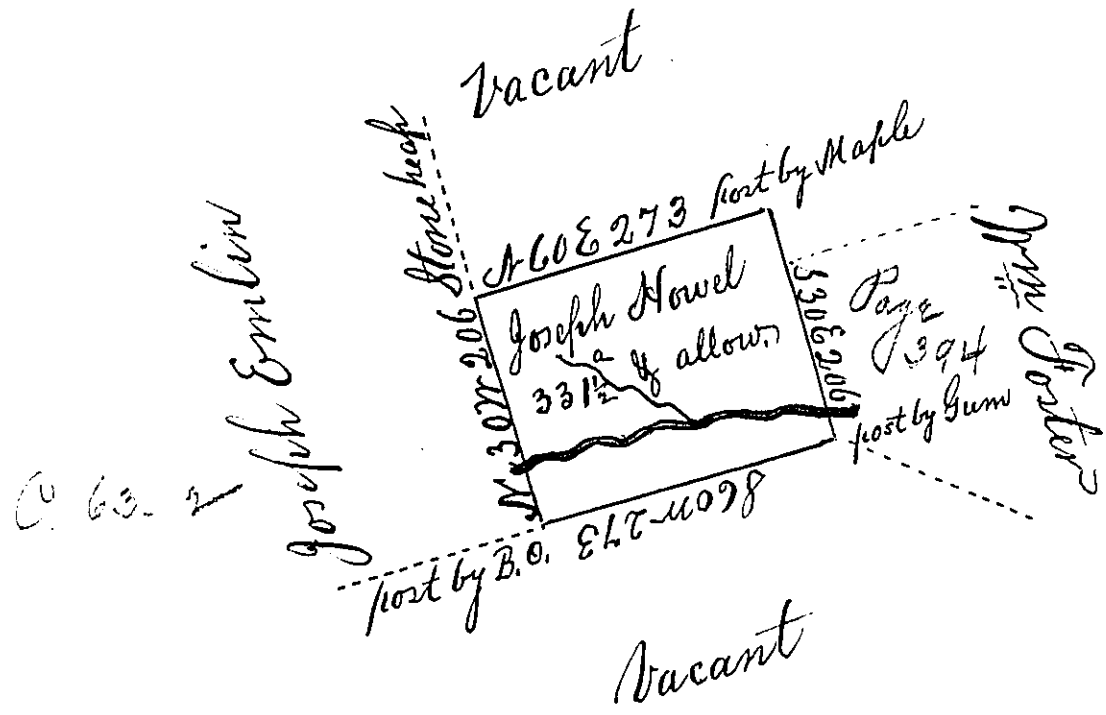 Vacant
Stone heap
N60E 273 post by Maple
Joseph Emlin
Joseph Howel
331½ a & allow.
N30W 206
S30E 206
Page
394
Wm Foster
post by Gum
S60W 273
post by B.O.
C. 63. 2
Vacant